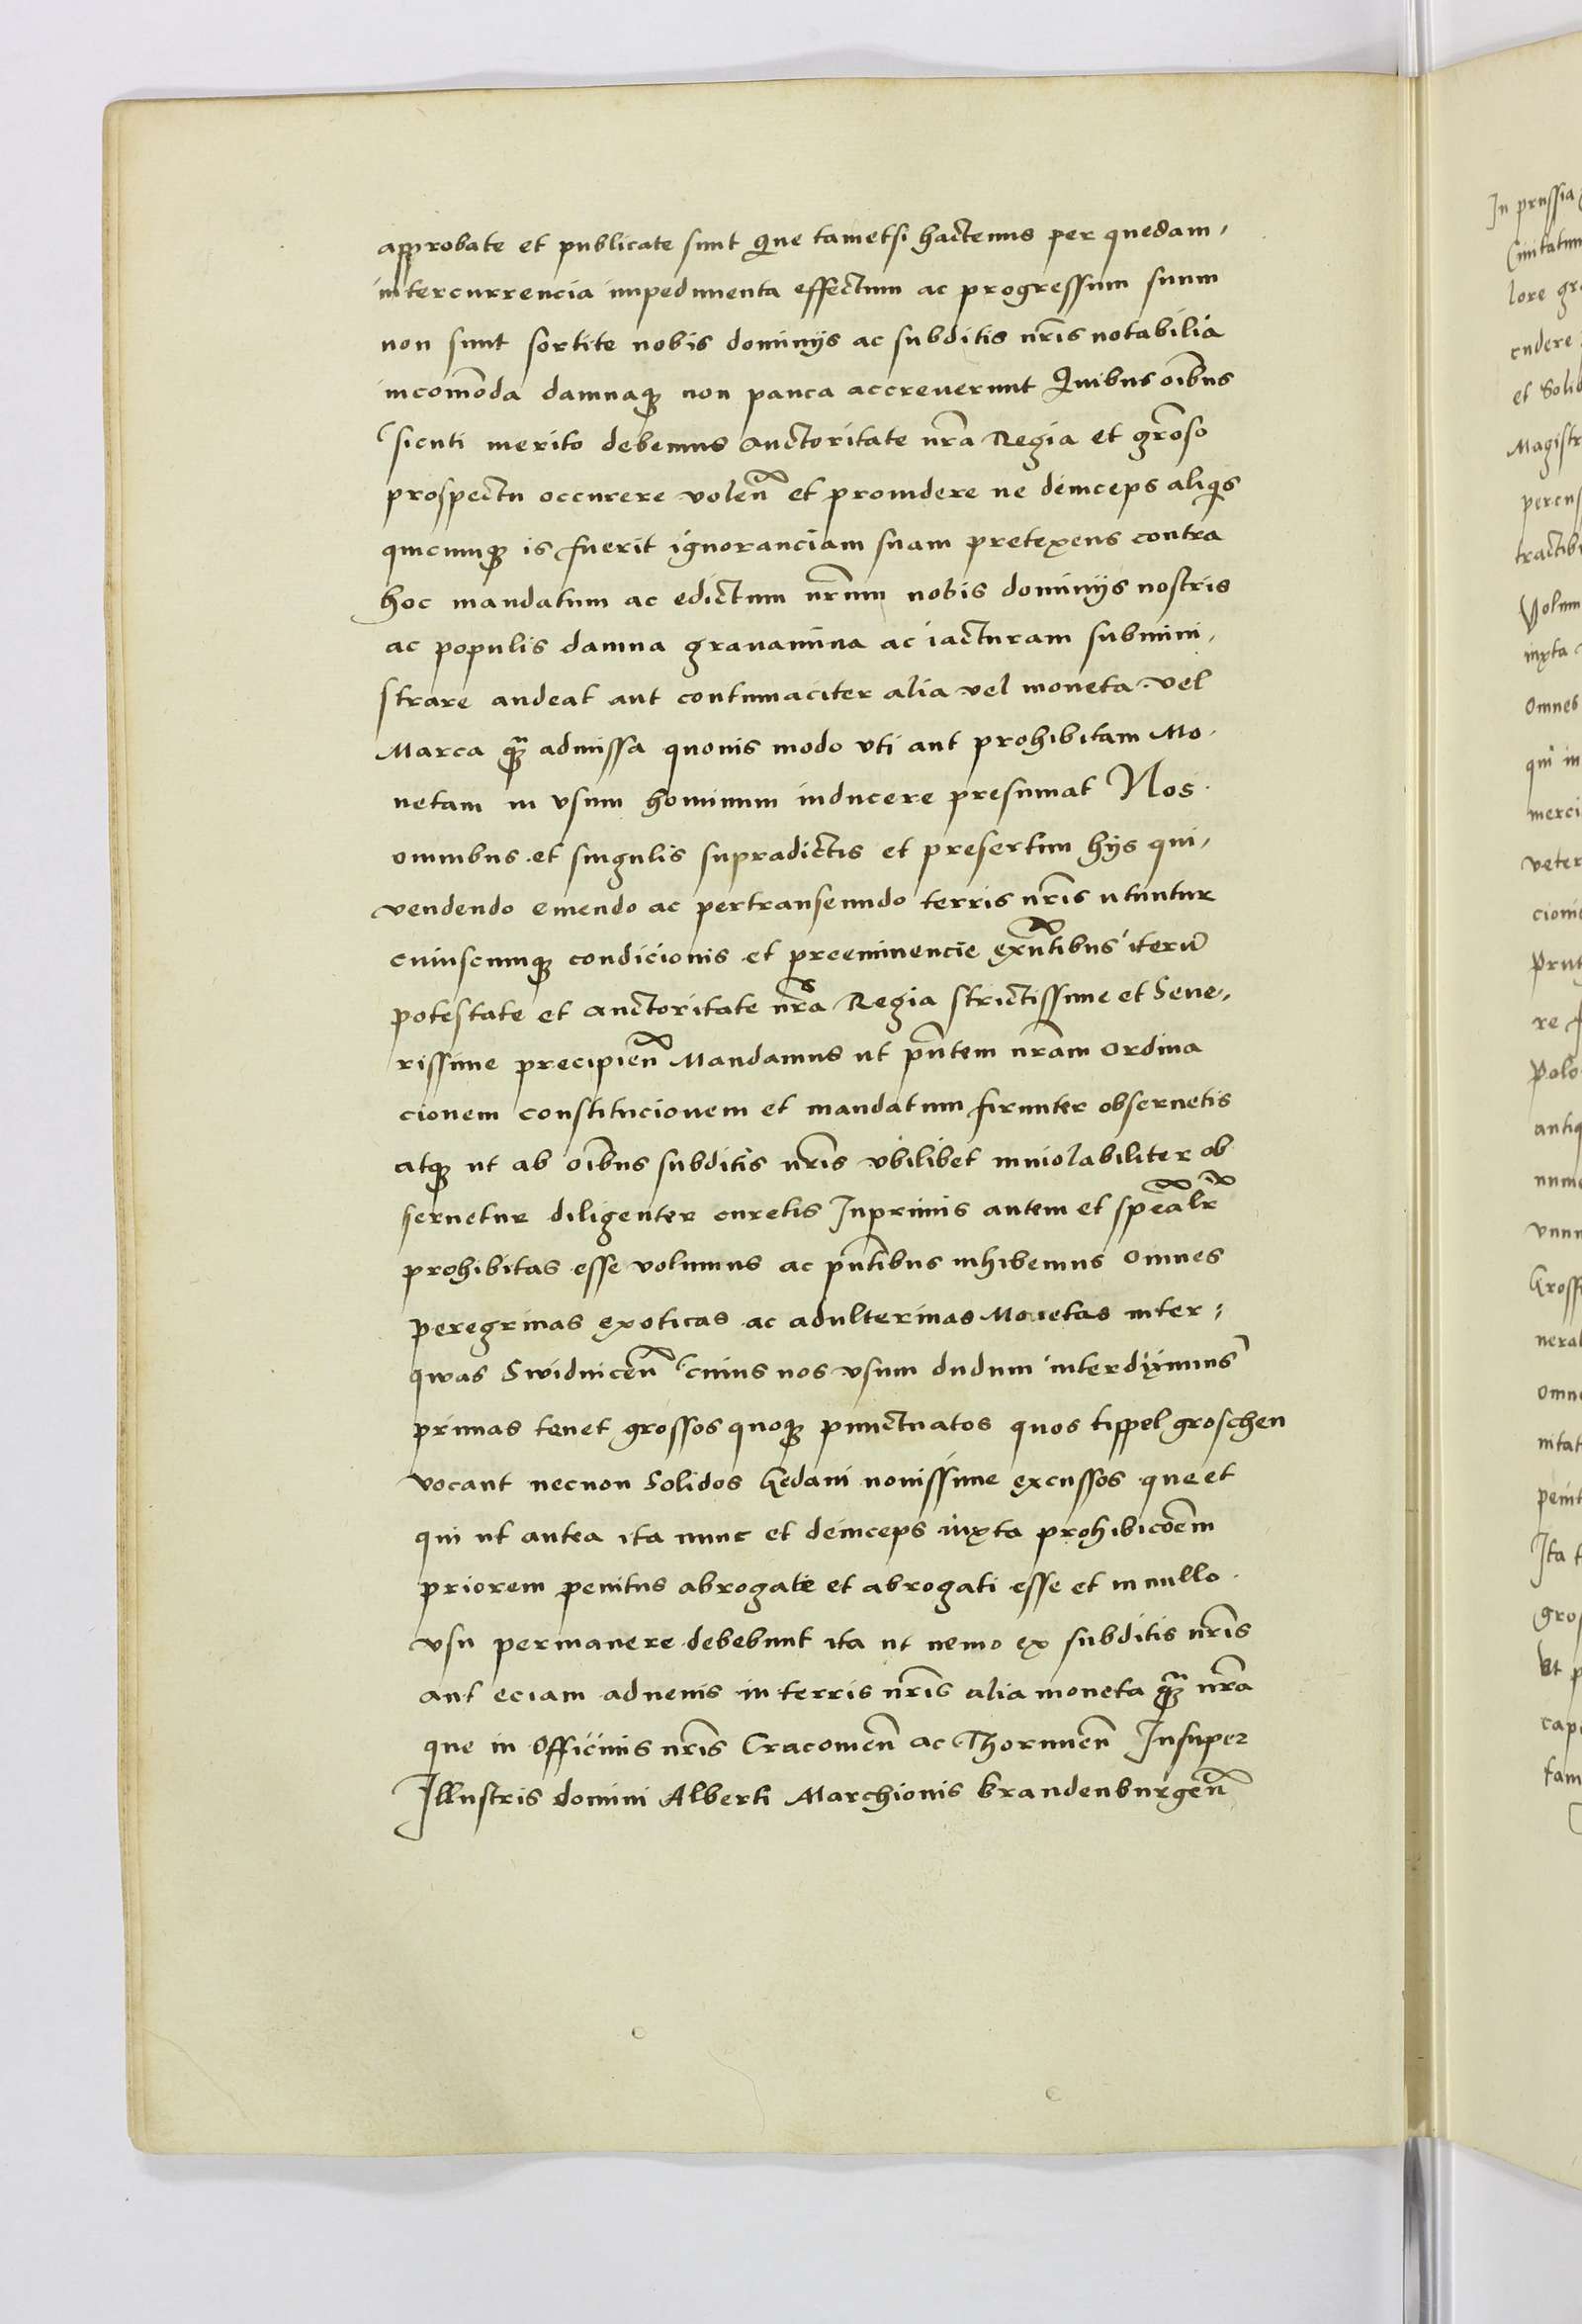 approbate et publicate sunt Que tametsi hactenus per quedam,
intercurrencia impedimenta effectum ac progressum suum
non sunt sortite nobis dominijs ac subditis nr̃is notabilia
incom̃oda damnaq₃ non pauca accreuerunt Quibus oĩbus
(sicuti merito debemus auctoritate nr̃a Regia et gr̃oso
prospectu occurere volen̄ et prouidere ne deinceps aliqis
quicunq₃ is fuerit ignoranciam suam pretexens contra
hoc mandatum ac edictum nr̃um nobis dominijs nostris
ac populis damna grauamina ac iacturam submini,
strare audeat aut contumaciter alia vel moneta vel
Marca q₃̃ admissa quouis modo vti aut prohibitam Mo,
netam in vsum hominum inducere presumat Nos
omnibus et singulis supradictis et presertim hijs qui,
vendendo emendo ac pertranseundo terris nr̃is utuntur
cuiuscumq₃ condicionis et preeminencie exñtibus iterum̃
potestate et auctoritate nr̃a Regia strictissime et Seue,
rissime precipien̄ Mandamus ut pñtem nr̃am Ordina
cionem constitucionem et mandatum firmiter obseruetis
atq₃ ut ab oĩbus subditis nr̃is vbilibet inuiolabiliter ob
seruetur diligenter curetis Inprimis autem et spẽalr̃
prohibitas esse volumus ac pñtibus inhibemus Omnes
peregrinas exoticas ac adulterinas Monetas inter:
qwas Swidnicen̄ (cuius nos vsum dudum interdiximus)
primas tenet grossos quoq₃ punctuatos quos tippel groschen
vocant necnon Solidos Gedani nouissime excussos que et
qui ut antea ita nunc et deinceps iuxta prohibicõem
priorem penitus abrogate et abrogati esse et in nullo
vsu permanere debebunt ita ut nemo ex subditis nr̃is
aut eciam aduenis in terris nr̃is alia moneta q₃̃ nr̃a
que in Officinis nr̃is Cracouien̄ ac Thorunien̄ Insuper
Illustris domini Alberti Marchionis brandenburgen̄
In prussia
lore
cudere
et
Magistr
Volum
iuxta
Omnes
qui in
merci
veter
re
Polo
Ita